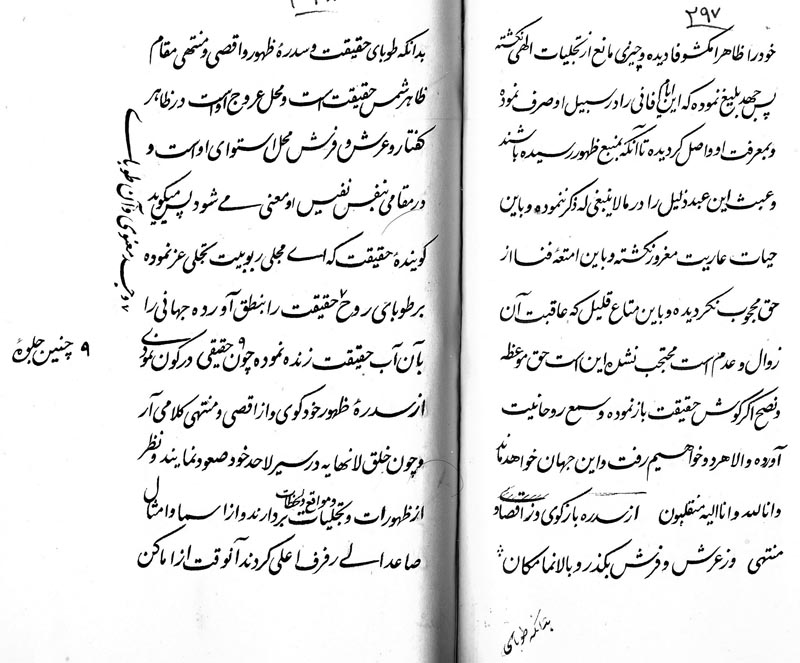 ۲۹۷
خود را ظاهرا مکشوفا دیده و چیزی مانع از تجلیات الهی نگشته
پس جهد بلیغ نموده که این ایام فانی را در سبیل او صرف نموده
و بمعرفت او واصل گردیده تا آنکه بمنبع ظهور رسیده باشند
و عبث این عبد ذلیل را در ما لا ینبغی له ذکر ننموده و باین
حیات عاریت مغرور نگشته و باین امتعهٔ فنا از
حق محجوب نگردیده و باین متاع قلیل که عاقبت آن
زوال و عدم است محتجب نشده این است حق موعظه
و نصح اگر گوش حقیقت باز نموده و سمع روحانیت
آورده والا هر دو خواهیم رفت و این جهان خواهد ماند
و انا لله و انا الیه منقلبون از سدره بازگوی و ز اقصا و
منتهی وز عرش و فرش بگذر و بالا نما مکان
بدانکه طوبای
بدانکه طوبای حقیقت و سدرهٔ ظهور و اقصی و منتهی مقام
ظاهر شمس حقیقت است و محل عروج او است در ظاهر
گفتار و عرش و فرش محل استوای او است و
در مقامی بنفس نفیس او معنی می شود پس میگوید
گویندهٔ حقیقت که اے مجلی ربوبیت تجلی عز نموده
بر طوبای روح حقیقت را بنطق آورده جهانی را
بآن آب حقیقت زنده نموده چون ۹ حقیقی در کون نمودی
از سدرهٔ ظهور خود گوی و از اقصی و منتهی کلامی آر
و چون خلق لا نهایه در سیر لا حد خود صعود نمایند و نظر
از ظهورات و تجلیات و مواقع و لحظات بردارند و از اسما و امثال
صاعد الے رفرف اعلی گردند آنوقت از اماکن
۹ چنین جلوهٔ